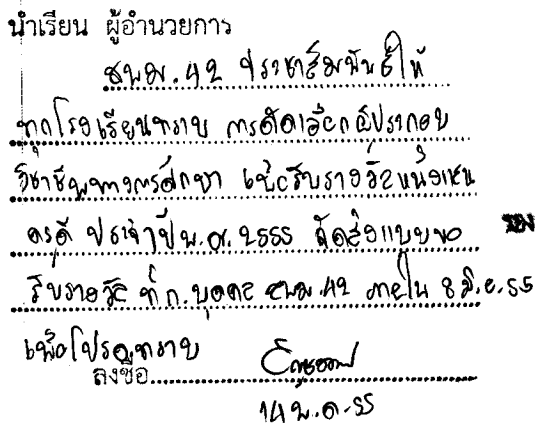 นำเรียน ผู้อำนวยการ
สพม.42 ประชาสัมพันธ์ให้
ทุกโรงเรียนทราบ การคัดเลือกผู้ประกอบ
วิชาชีพทางการศึกษา เพื่อรับรางวัลหนึ่งแสน
ครูดี ประจำปี พ.ศ. 2555 จัดส่งแบบขอ
รับรางวัล ที่ ก.บุคคล สพม.42 ภายใน 8 มิ.ย.55
เพื่อโปรดทราบ
ลงชื่อ
14 พ.ค.55